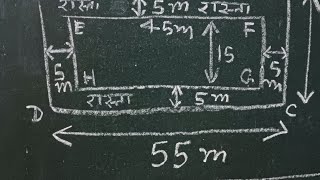 रास्ता 5m रास्ता
E 45m F
5m 15 5m
H G
रास्ता 5m
D C
55m